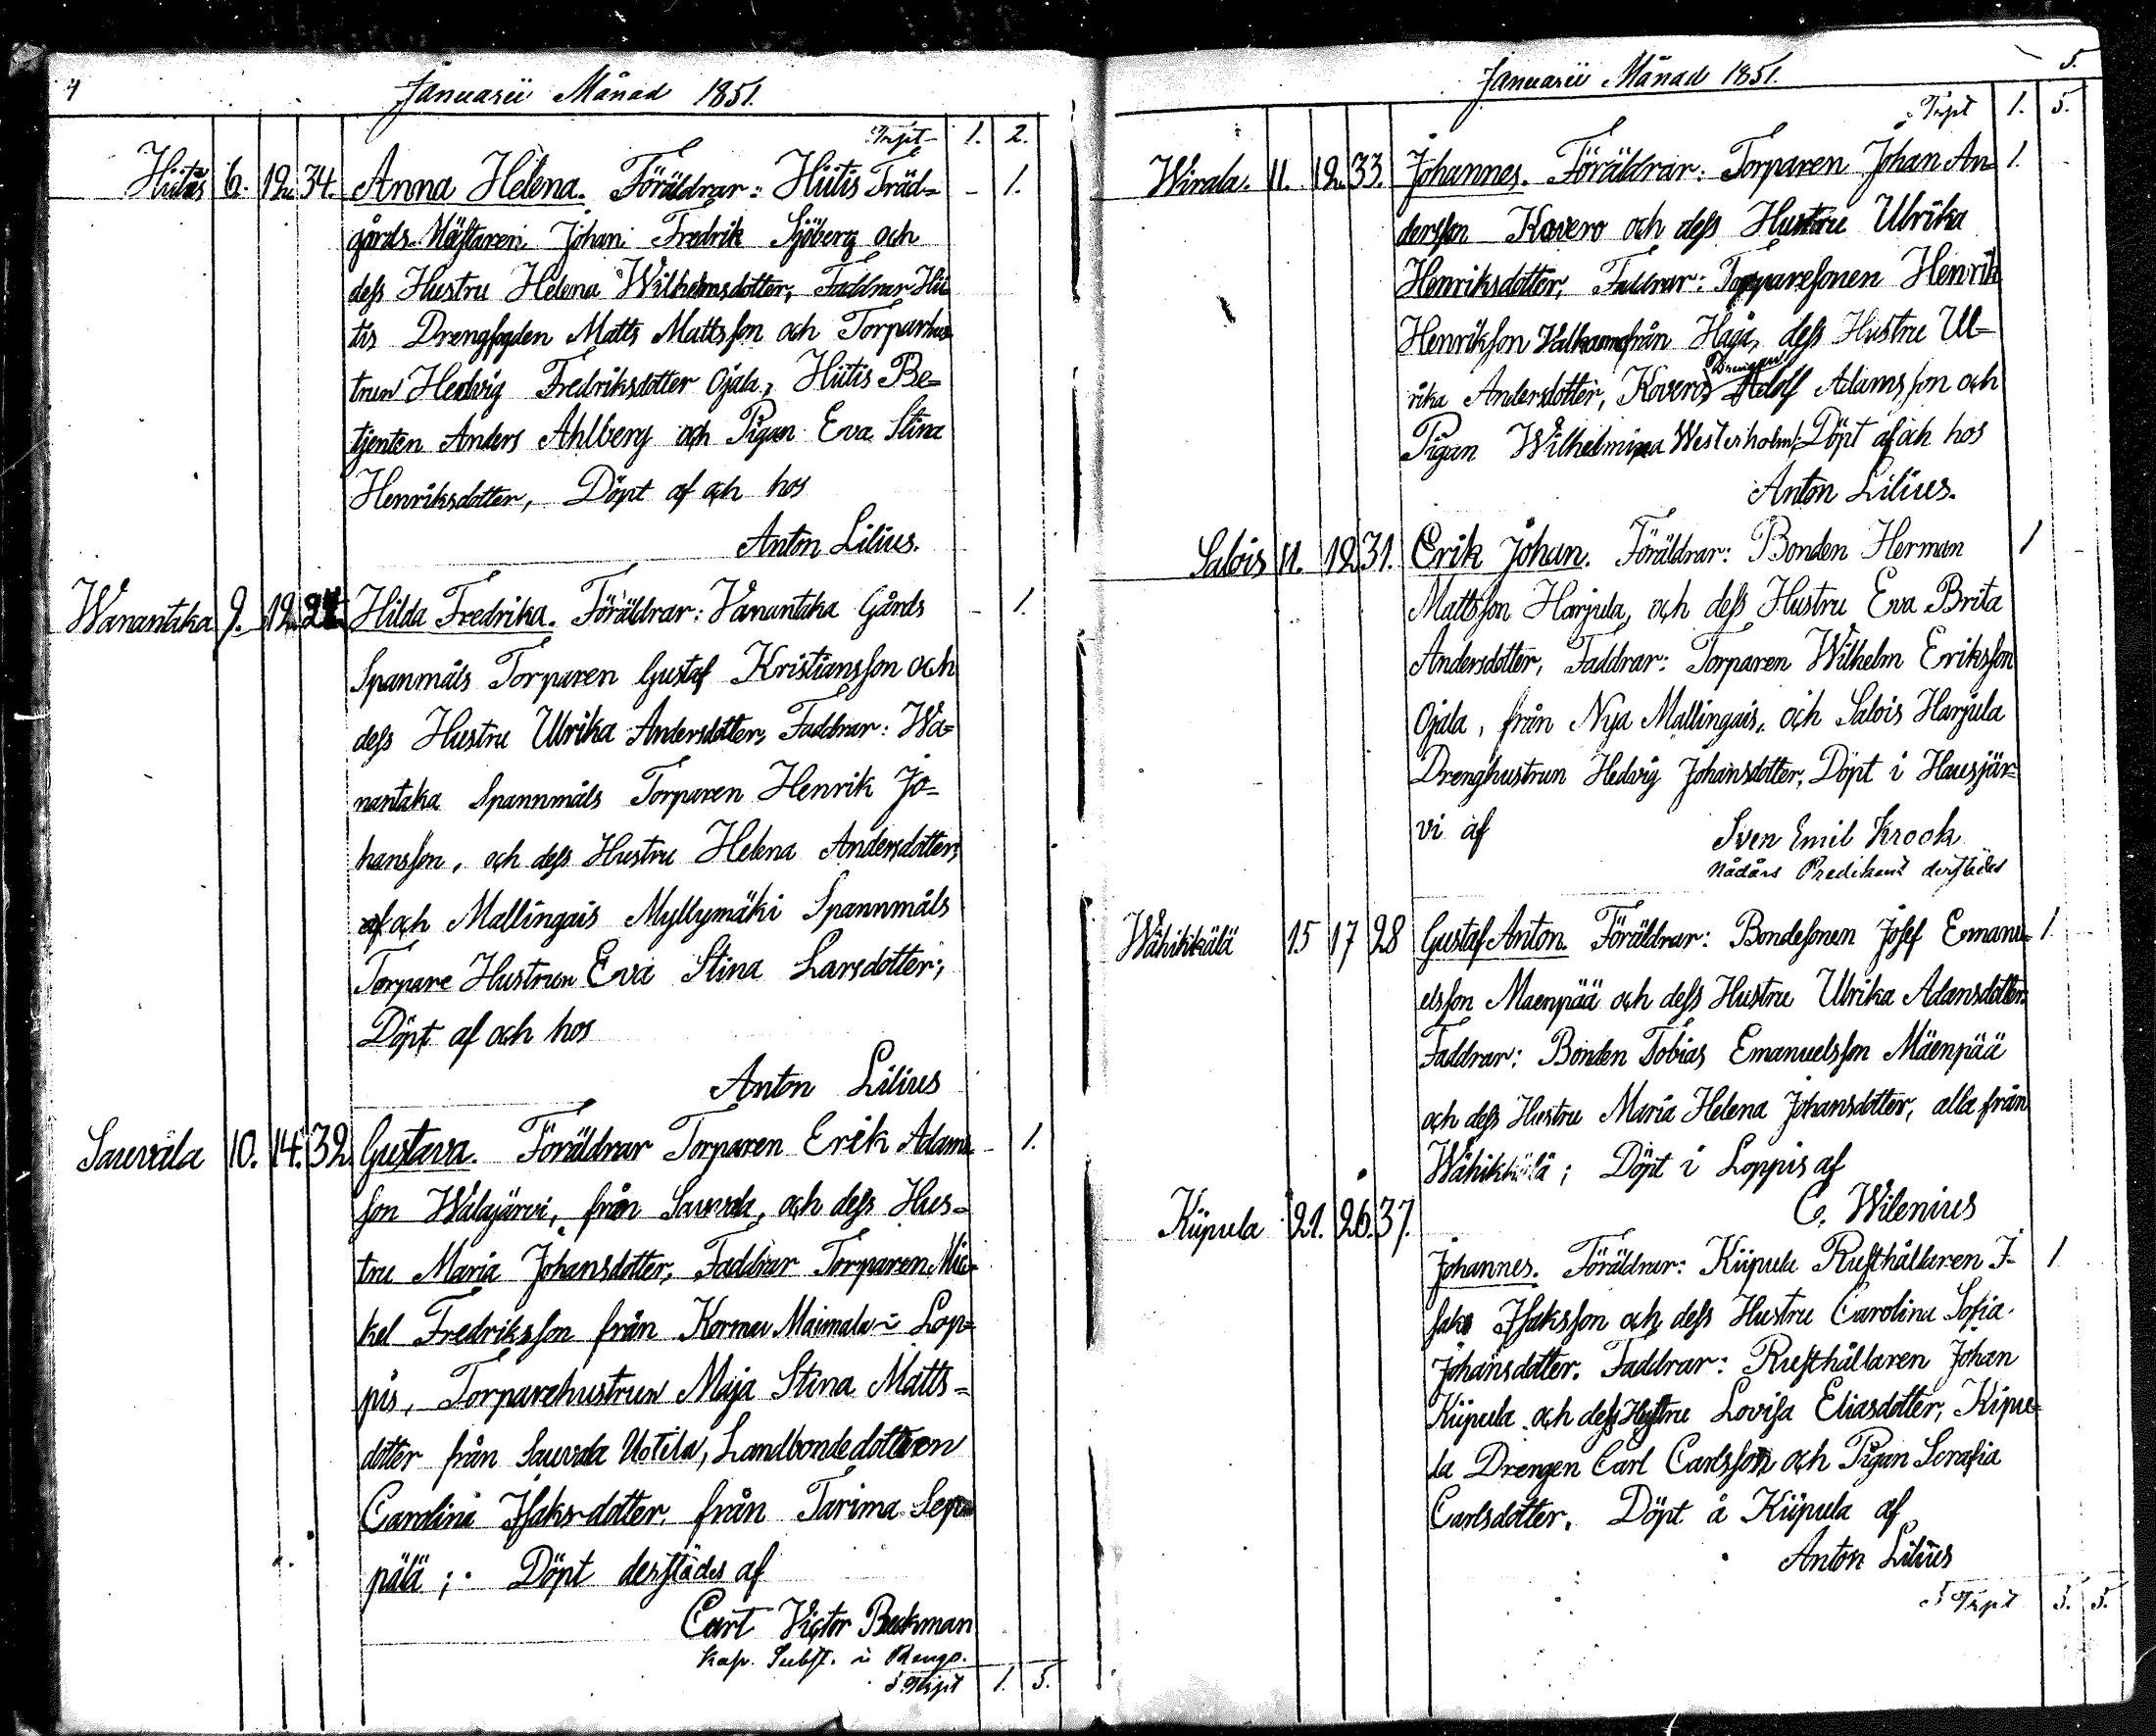 4
Januarii Månad 1851.
Trpt 1. 2.
Hiitis 6. 12. 34. Anna Helena. Föräldrar: Hiitis Träd= – 1.
gårds-Mästaren Johan Fredrik Sjöberg och
dess Hustru Helena Wilhelmsdotter, Faddrar Hii
tis Drengfogden Matts Mattsson och Torparhus
trun Hedvig Fredriksdotter Ojala, Hiitis Be=
tjenten Anders Ahlberg och Pigan Eva Stina
Henriksdotter, Döpt af och hos
Anton Lilius.
Wanantaka 9. 12. Hilda Fredrika. Föräldrar: Vanantaka Gårds – 1.
Spanmåls Torparen Gustaf Kristiansson och
dess Hustru Ulrika Andersdotter, Faddrar: Wa=
nantaka Spannmåls Torparen Henrik Jo=
hansson, och dess Hustru Helena Andersdotter,
och Mallingais Myllymäki Spannmåls
Torpare Hustrun Eva Stina Larsdotter;
Döpt af och hos
Anton Lilius
Sauvala 10. 14. 32. Gustava. Föräldrar Torparen Erik Adams – 1.
son Walajärvi, från Sauvala, och dess Hus=
tru Maria Johansdotter, Faddrar Torparen Mic=
kel Fredriksson från Kormu Maimala i Lop=
pis, Torparehustrun Maja Stina Matts=
dotter från Sauvala Uotila, Landbondedottren
Carolina Isaks-dotter från Tarima Sep
pälä; Döpt derstädes af
Carl Victor Beckman
Kap. Subst. i Rengo.
Trpt 1. 5.
5.
Januarii Månad 1851.
Trpt 1. 5.
Wirala. 11. 12. 33. Johannes. Föräldrar: Torparen Johan An= 1.
dersson Kovero och dess Hustru Ulrika
Henriksdotter, Faddrar: Torparesonen Henrik
Henriksson från Haga, dess Hustru Ul=
Drengen
rika Andersdotter, Kovero Adolf Adamsson och
Pigan Wilhelmina Westerholm; Döpt af och hos
Anton Lilius.
Salois 11. 12. 31. Erik Johan. Föräldrar: Bonden Herman 1
Mattsson Harjula, och dess Hustru Eva Brita
Andersdotter, Faddrar: Torparen Wilhelm Eriksson
Ojala, från Nya Mallingais, och Salois Harjula
Drenghustrun Hedvig Johansdotter, Döpt i Hausjär=
vi af
Sven Emil Krook
Nådårs Predikant derstädes
Wähikkälä 15 17 28 Gustaf Anton. Föräldrar: Bondesonen Josef Emanu= 1.
elsson Maenpää och dess Hustru Ulrika Adamsdotter.
Faddrar: Bonden Tobias Emanuelsson Mäenpää
och dess Hustru Maria Helena Johansdotter, alla från
Wähikkälä; Döpt i Loppis af
C. Wilenius
Kiipula 21. 26. 37.
Johannes. Föräldrar: Kiipula Rusthållaren I= 1
sak Isaksson och dess Hustru Carolina Sofia
Johansdotter. Faddrar: Rusthållaren Johan
Kiipula och dess Hustru Lovisa Eliasdotter, Kipu=
la Drengen Carl Carlsson och Pigan Serafia
Carlsdotter. Döpt å Kiipula af
Anton Lilius
Trpt 5. 5.